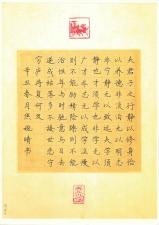 夫君子之行静以修身俭
以养德非淡泊无以明志
非宁静无以致远夫学须
静也才须学也非学无以
广才非志无以成学淫慢
则不能励精险躁则不能
治性年与时驰意与日去
遂成枯落多不接世悲守
穷庐将复何及
辛丑春月 晴书